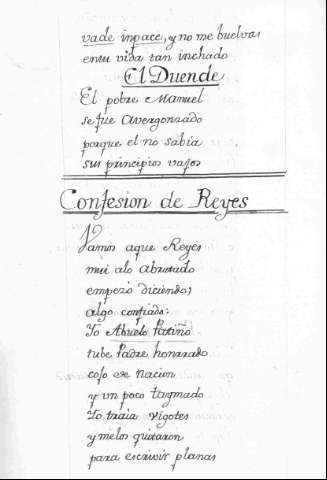 vade inpace, y no me buelvas
entu vida tan inchado
El Duende
El pobre Manuel
se fue avergonzado
porque el no sabia
sus principios vajos
Confesion de Reyes
Vamos aque Reyes
mui alo abrutado
empezó diciendo,
algo confiado:
Yo Abuelo Patiño
tube Padre honrrado
cojo de nacion
y un poco taymado
Yo traia vigotes
y melos quitaron
para escrivir planas